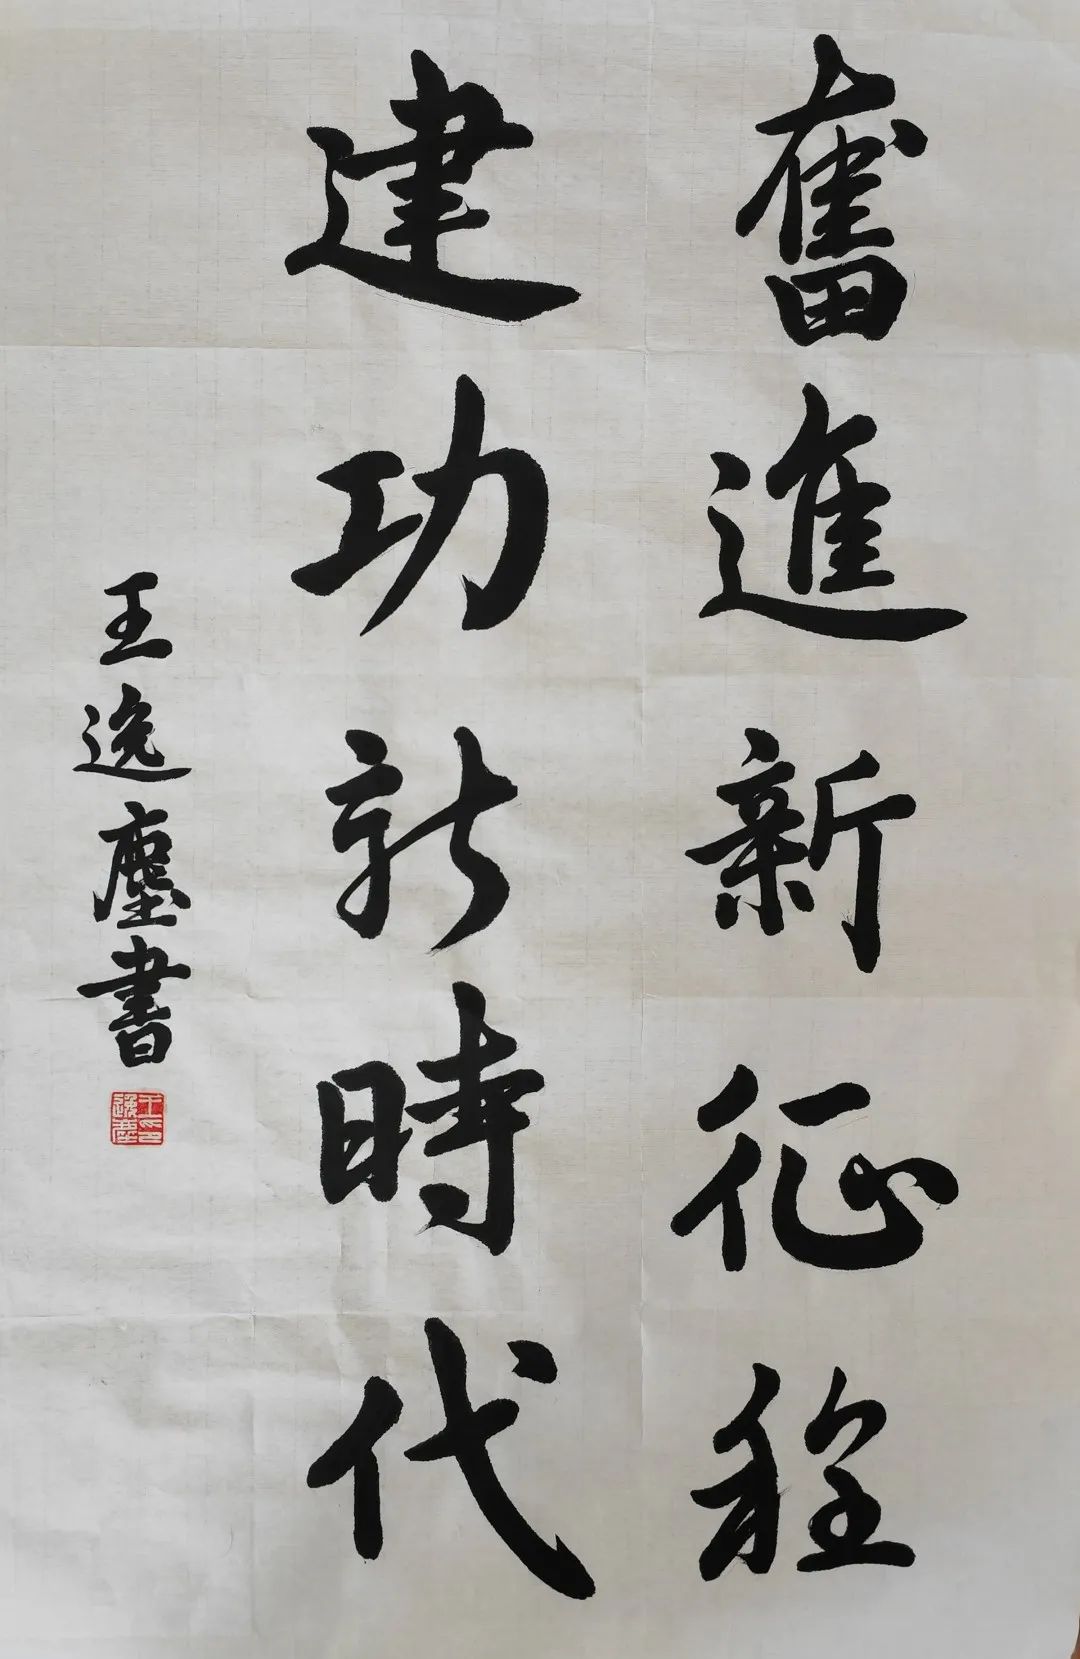 奮進新征程
建功新時代
王逸塵書
王逸塵印